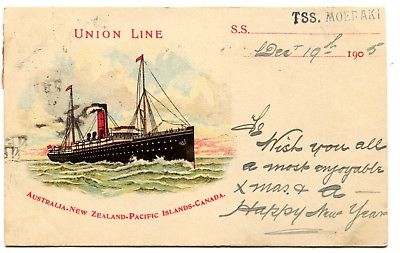 UNION LINE
S.S.
TSS. MOERAKI
Dec 19th 1905
AUSTRALIA-NEW ZEALAND-PACIFIC ISLANDS-CANADA.
Wish you all
a most enjoyable
Xmas & a
Happy New Year